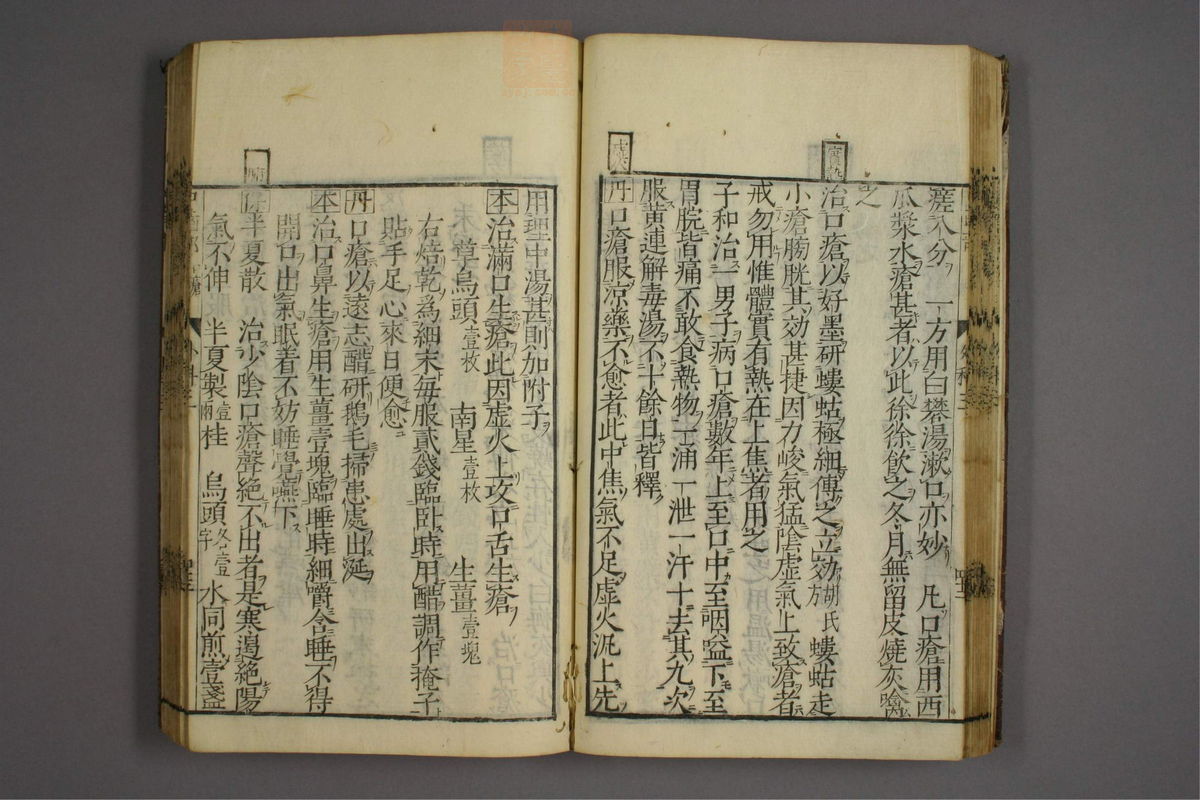 瘥不分 一方用白礬湯漱口亦妙 凡口瘡用西
瓜漿水瘡甚者以此徐徐飲之冬月無留皮燒灰噙
之
實熱
治口瘡以好墨研螻蛄極細傅之立効胡氏方 螻蛄走
小瘡膀胱其効甚捷因力峻氣猛陰虛氣上致瘡者
戒勿用惟體實有熱在上焦者用之
子和治一男子病口瘡數年上至口中至咽嗌下至
胃脘皆痛不敢食熱物一涌一泄一汗十去其九次
服黃連解毒湯不十餘日皆釋
虛火
丹口瘡服涼藥不愈者此中焦氣不足虛火泛上先
用理中湯甚則加附子
本治滿口生瘡此因虛火上攻口舌生瘡
草烏頭壹枚 南星壹枚 生薑壹塊
右焙乾為細末每服貳錢臨卧時用醋調作掩子
貼手足心來日便愈
丹口瘡以遠志醋研鵝毛掃患處出涎
本治口鼻生瘡用生薑壹塊臨睡時細嚼含睡不得
開口出氣眠着不妨睡覺嚥下
半夏散 治少陰口瘡聲絕不出者是寒遏絕陽
氣不伸 半夏製壹兩 桂 烏頭各壹字 水同煎壹盞